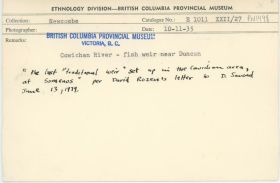 ETHNOLOGY DIVISION—BRITISH COLUMBIA PROVINCIAL MUSEUM
Collection: Newcombe Catalogue No.: E 1011 XXII/27
Photographer: BRITISH COLUMBIA PROVINCIAL MUSEUM Date: 10-11-35
VICTORIA, B. C.
Cowichan River - fish weir near Duncan
"the last "traditional weir" set up in the Cowichan area,
at Somenos" per David Rozen's letter to D. Savard
June 13, 1979.